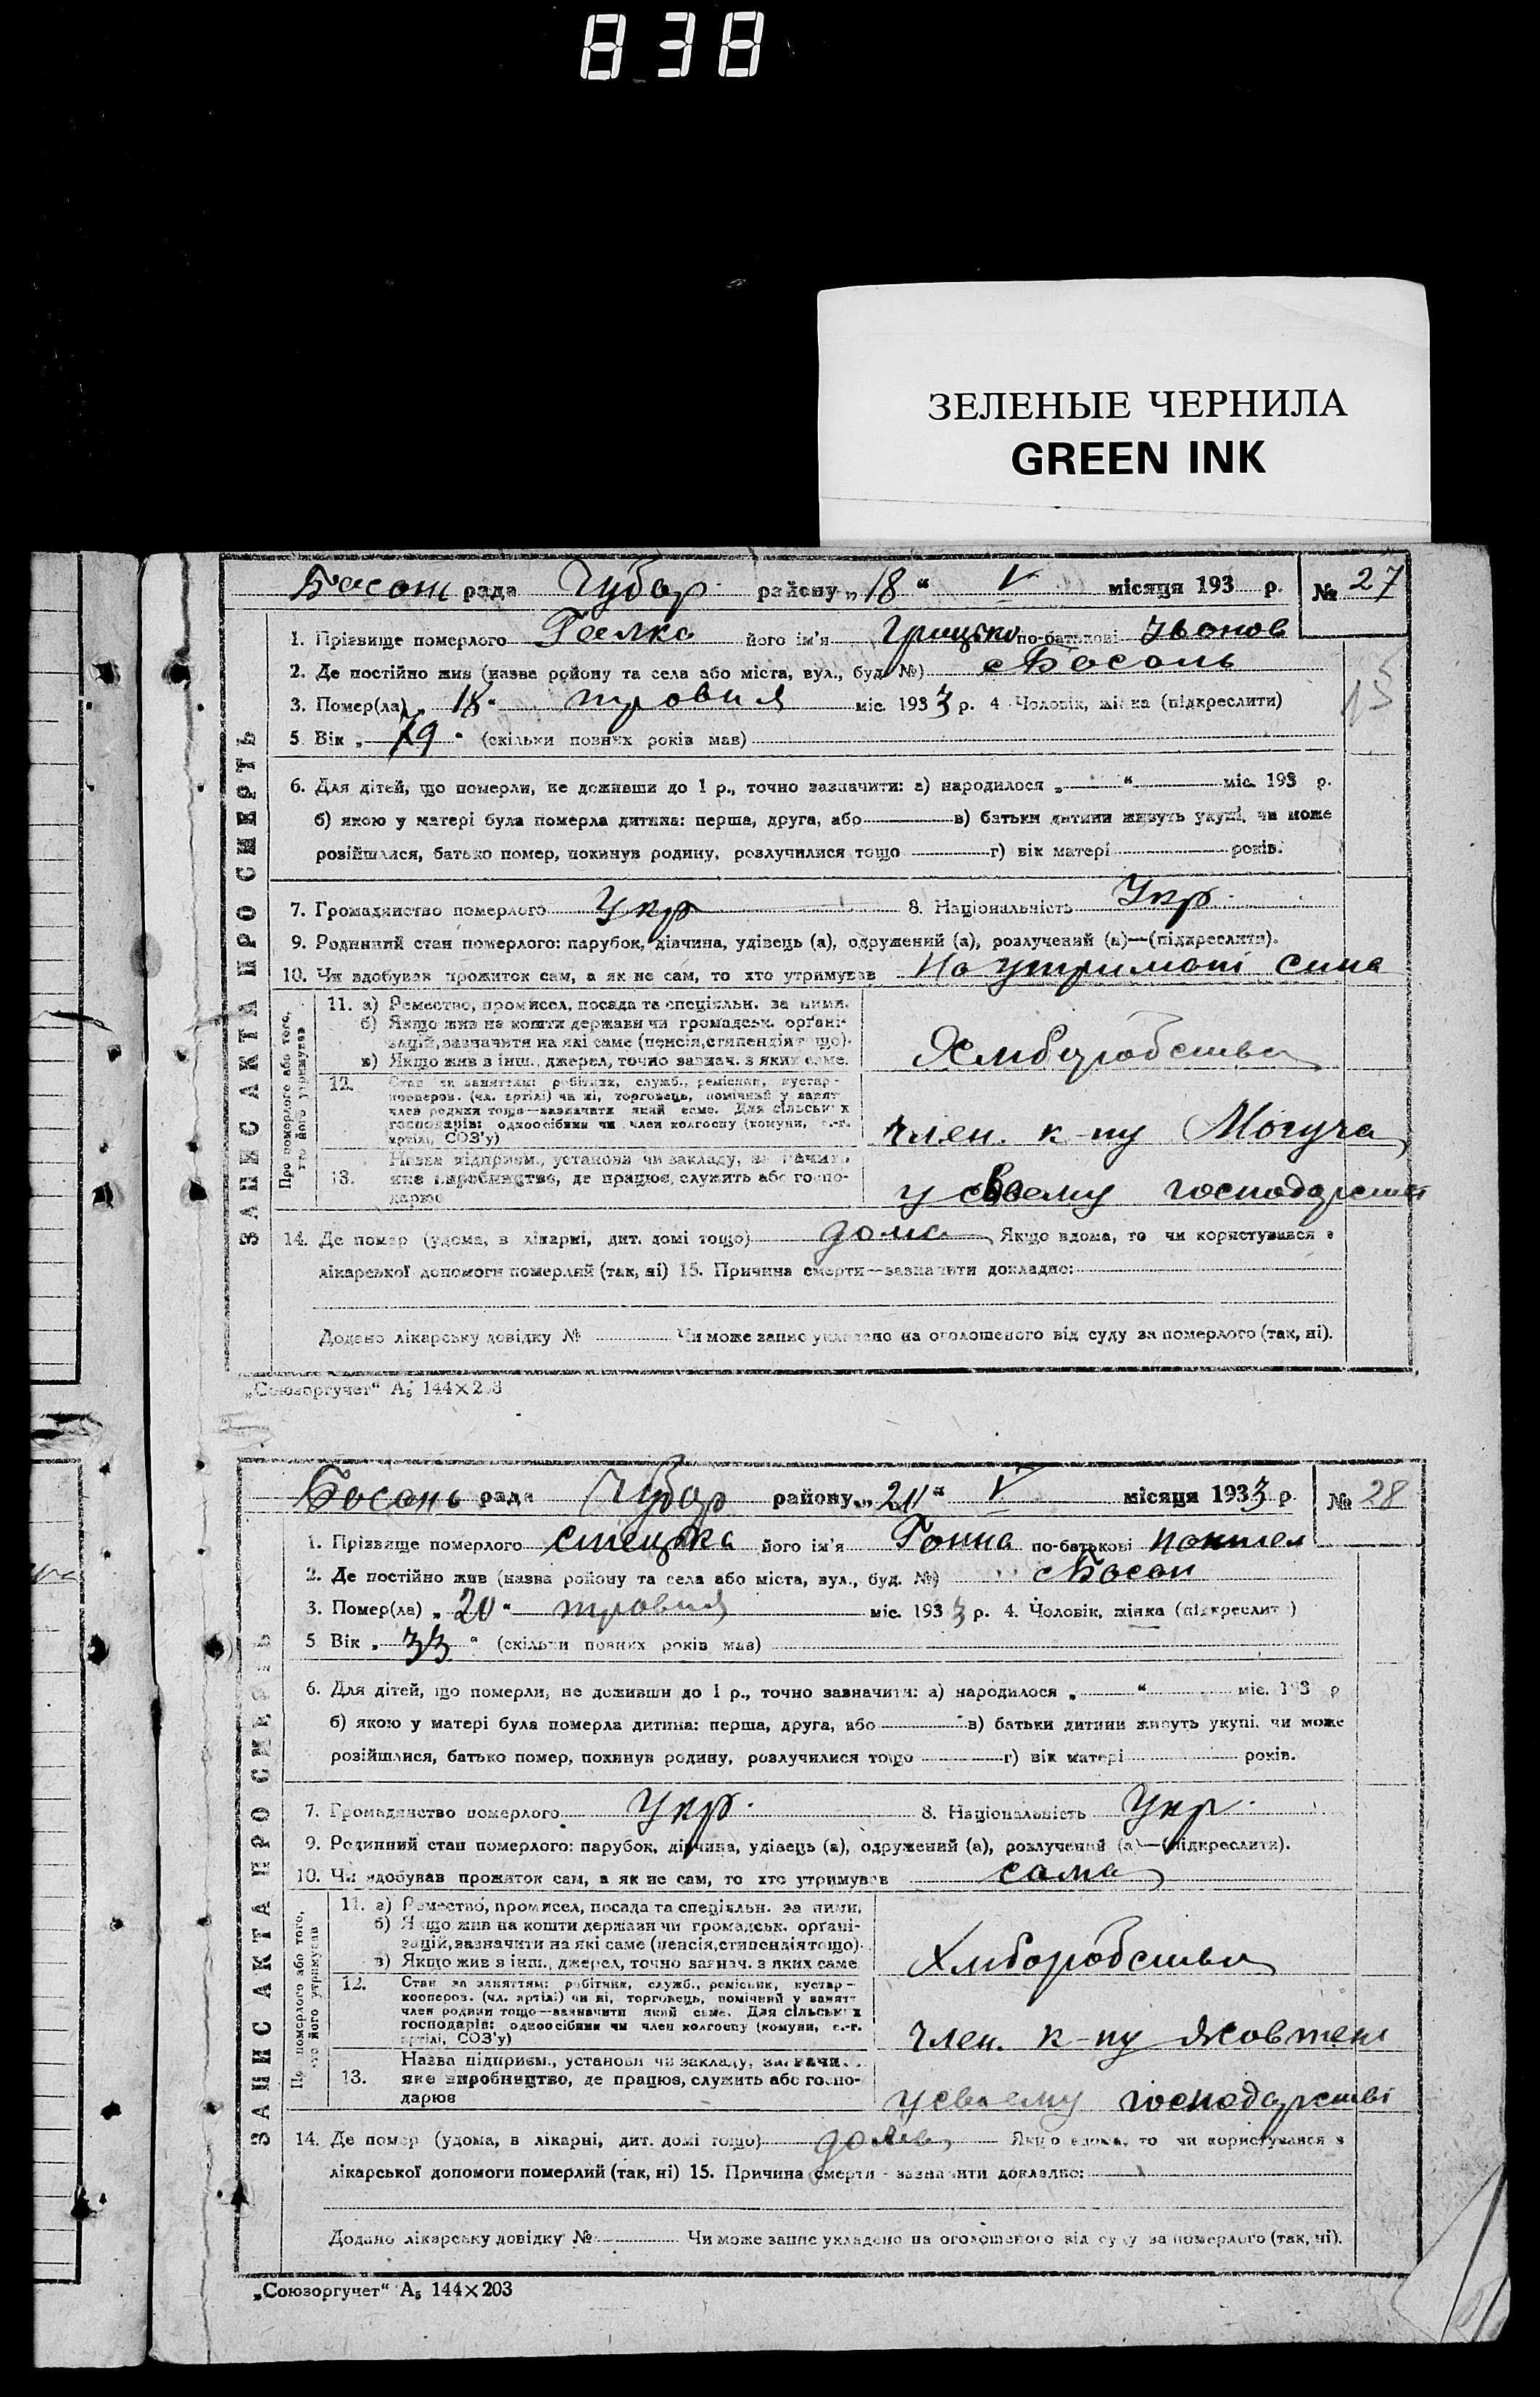 838
ЗЕЛЕНЫЕ ЧЕРНИЛА
GREEN INK
ЗАПИС АКТА ПРО СМЕРТЬ
рада Чубар району „18“ V місяця 193 р. № 27
1. Прізвище померлого його ім'я Грицько по-батькові
2. Де постійно жив (назва району та села або міста, вул., буд. №) с Босань
3. Помер(ла) „18“ травня міс. 1933 р. 4. Чоловік, жінка (підкреслити)
5. Вік „79“ (скільки повних років мав)
6. Для дітей, що померли, не доживши до 1 р., точно зазначити: а) народилося „ “ міс. 193 р.
б) якою у матері була померла дитина: перша, друга, або в) батьки дитини живуть укупі, чи може
розійшлися, батько помер, покинув родину, розлучилися тощо г) вік матері років.
7. Громадянство померлого Укр 8. Національність Укр.
9. Родинний стан померлого: парубок, дівчина, удівець (а), одружений (а), розлучений (а)—(підкреслити).
10. Чи здобував прожиток сам, а як не сам, то хто утримував На утримані сина
Про померлого або того, хто його утримував
11. а) Ремество, промисел, посада та спеціяльн. за ними.
б) Якщо жив на кошти держави чи громадськ. органі-
зацій, зазначити на які саме (пенсія, стипендія тощо).
в) Якщо жив з інш. джерел, точно зазнач. з яких саме.
Хліборобства
12. Стан за заняттям: робітник, служб., ремісник, кустар-
коопероз. (чл. артілі) чи ні, торговець, помічний у занят.
член родини тощо—зазначити який саме. Для сільськ х
господарів: одноосібник чи член колгоспу (комуни, с.-г.
артілі, СОЗ'у)
член. к-пу Могуча
13. Назва підприєм., установи чи закладу,
яке виробництво, де працює, служить або госпо-
дарює
у своему господарстві
14. Де помер (удома, в лікарні, дит. домі тощо) дома Якщо вдома, то чи користувався з
лікарської допомоги померлий (так, ні) 15. Причина смерти—зазначити докладно:
Додано лікарську довідку № Чи може запис укладено на оголошеного від суду за померлого (так, ні).
„Союзоргучет“ А5 144×203
ЗАПИС АКТА ПРО СМЕРТЬ
Босань рада Чубар району „ “ V місяця 1933 р. № 28
1. Прізвище померлого Стецька його ім'я Ганна по-батькові
2. Де постійно жив (назва району та села або міста, вул., буд. №) с Босан
3. Помер(ла) „20“ травня міс. 1933 р. 4. Чоловік, жінка (підкреслити)
5. Вік „33“ (скільки повних років мав)
6. Для дітей, що померли, не доживши до 1 р., точно зазначити: а) народилося „ “ міс. 193 р
б) якою у матері була померла дитина: перша, друга, або в) батьки дитини живуть укупі, чи може
розійшлися, батько помер, покинув родину, розлучилися тощо г) вік матері років.
7. Громадянство померлого Укр. 8. Національність Укр.
9. Родинний стан померлого: парубок, дівчина, удівець (а), одружений (а), розлучений (а)—(підкреслити).
10. Чи здобував прожиток сам, а як не сам, то хто утримував сама
Про померлого або того, хто його утримував
11. а) Ремество, промисел, посада та спеціяльн. за ними.
б) Якщо жив на кошти держави чи громадськ. органі-
зацій, зазначити на які саме (пенсія, стипендія тощо).
в) Якщо жив з інш. джерел, точно зазнач. з яких саме
Хліборобства
12. Стан за заняттям: робітник, служб., ремісник, кустар-
коопероз. (чл. артілі) чи ні, торговець, помічний у занят
член родини тощо—зазначити який саме. Для сільськ х
господарів: одноосібник чи член колгоспу (комуни, с.-г.
артілі, СОЗ'у)
член. к-пу Жовтень
13. Назва підприєм., установи чи закладу,
яке виробництво, де працює, служить або госпо-
дарює
у своему господарстві
14. Де помер (удома, в лікарні, дит. домі тощо) дома Якщо вдома, то чи користувався з
лікарської допомоги померлий (так, ні) 15. Причина смерти - зазначити докладно:
Додано лікарську довідку № Чи може запис укладено на оголошеного від суду за померлого (так, ні).
„Союзоргучет“ А5 144×203